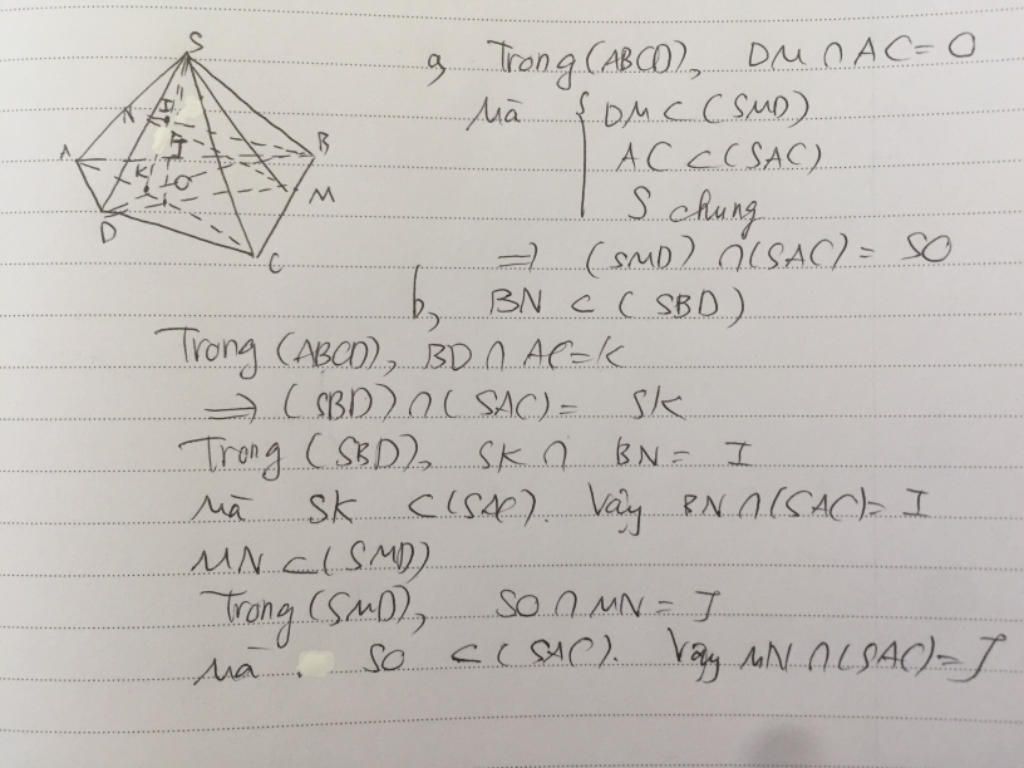 S
N I
A J B
K O M
D
C
a, Trong (ABCD), DM ∩ AC = O
Mà { DM ⊂ (SMD)
AC ⊂ (SAC)
S chung
⇒ (SMD) ∩ (SAC) = SO
b, BN ⊂ (SBD)
Trong (ABCD), BD ∩ AC = K
⇒ (SBD) ∩ (SAC) = SK
Trong (SBD), SK ∩ BN = I
Mà SK ⊂ (SAC). Vậy BN ∩ (SAC) = I
MN ⊂ (SMD)
Trong (SMD), SO ∩ MN = J
Mà SO ⊂ (SAC). Vậy MN ∩ (SAC) = J